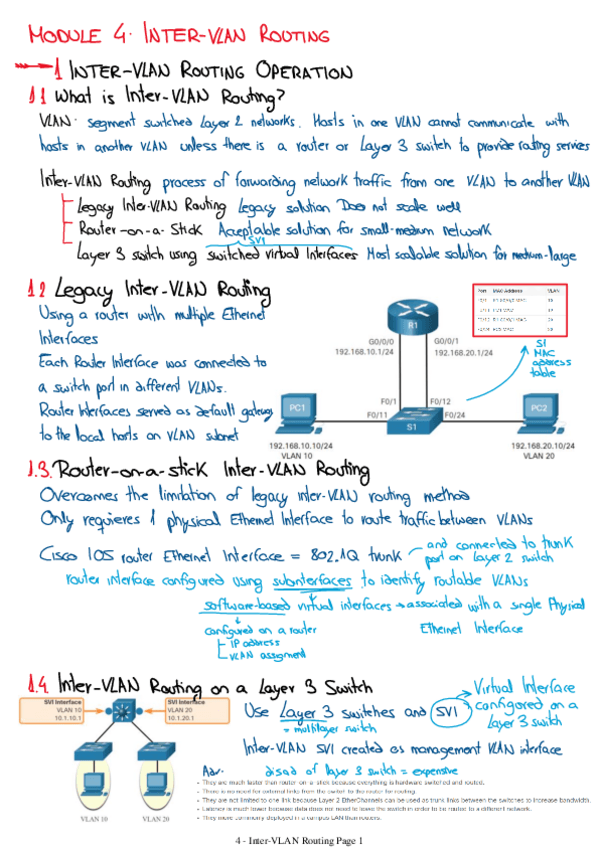 MODULE 4. INTER-VLAN ROUTING
1 INTER-VLAN ROUTING OPERATION
1.1 What is Inter-VLAN Routing?
VLAN: segment switched Layer 2 networks. Hosts in one VLAN cannot communicate with
hosts in another VLAN unless there is a router or Layer 3 switch to provide routing services
Inter-VLAN Routing process of forwarding network traffic from one VLAN to another VLAN
Legacy Inter-VLAN Routing Legacy solution Does not scale well
Router-on-a-Stick Acceptable solution for small-medium network
SVI
Layer 3 switch using switched virtual Interfaces Most scalable solution for medium-large
1.2 Legacy Inter-VLAN Routing
Using a router with multiple Ethernet
Interfaces
Each Router Interface was connected to
a switch port in different VLANs.
Router Interfaces served as default gateway
to the local hosts on VLAN subnet
Port MAC Address VLAN
R1
G0/0/0
192.168.10.1/24
G0/0/1
192.168.20.1/24
S1
MAC
address
table
PC1
F0/1
F0/12
PC2
F0/11
S1
F0/24
192.168.10.10/24
VLAN 10
192.168.20.10/24
VLAN 20
1.3. Router-on-a-stick Inter-VLAN Routing
Overcomes the limitation of legacy inter-VLAN routing method
Only requieres 1 physical Ethernet Interface to route traffic between VLANs
Cisco IOS router Ethernet Interface = 802.1Q trunk
and connected to trunk
port on Layer 2 switch
router interface configured using subinterfaces to identify routable VLANs
software-based virtual interfaces → associated with a single Physical
Ethernet Interface
configured on a router
IP address
VLAN assigment
1.4. Inter-VLAN Routing on a Layer 3 Switch
SVI Interface
VLAN 10
10.1.10.1
SVI Interface
VLAN 20
10.1.20.1
VLAN 10
VLAN 20
Use Layer 3 switches and SVI
= multilayer switch
Virtual Interface
configured on a
Layer 3 switch
Inter-VLAN SVI created as management VLAN interface
Adv. disad of layer 3 switch = expensive
• They are much faster than router-on-a-stick because everything is hardware switched and routed.
• There is no need for external links from the switch to the router for routing.
• They are not limited to one link because Layer 2 EtherChannels can be used as trunk links between the switches to increase bandwidth.
• Latency is much lower because data does not need to leave the switch in order to be routed to a different network.
• They more commonly deployed in a campus LAN than routers.
4 - Inter-VLAN Routing Page 1